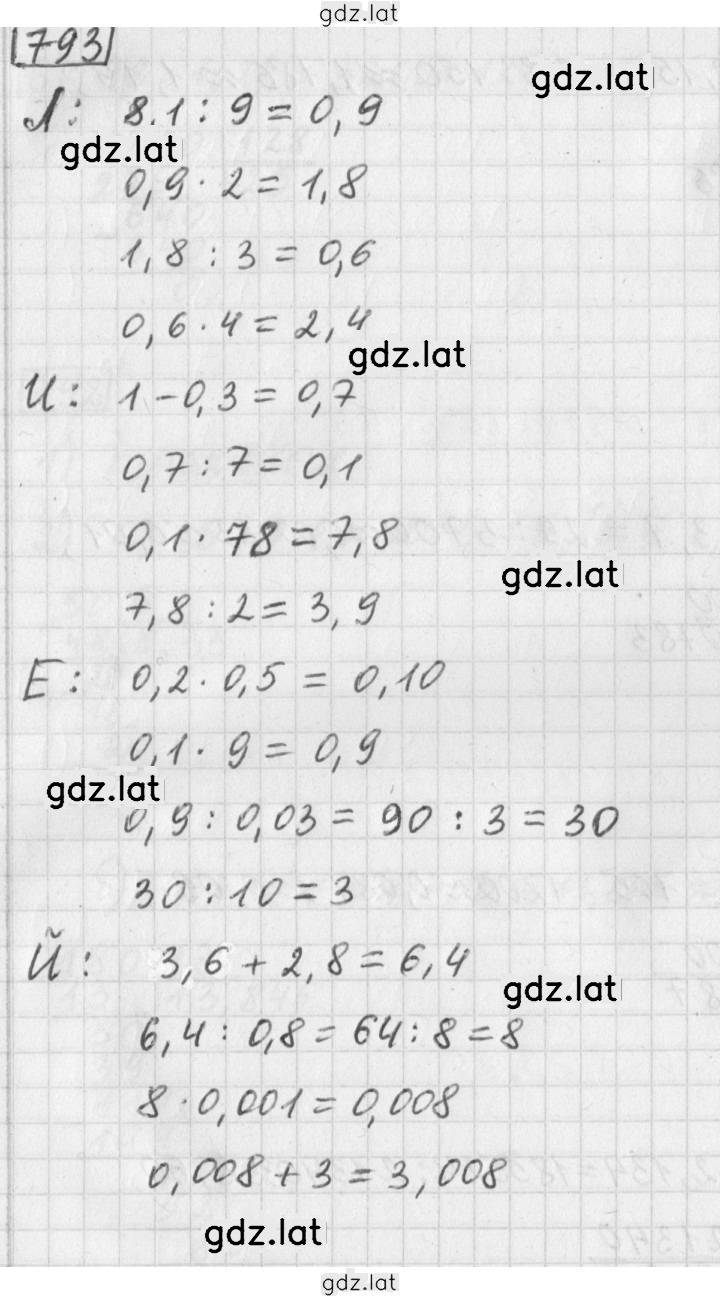 gdz.lat
793
gdz.lat
Л: 8.1 : 9 = 0,9
gdz.lat
0,9 · 2 = 1,8
1,8 : 3 = 0,6
0,6 · 4 = 2,4
gdz.lat
И: 1 - 0,3 = 0,7
0,7 : 7 = 0,1
0,1 · 78 = 7,8
gdz.lat
7,8 : 2 = 3,9
Е: 0,2 · 0,5 = 0,10
0,1 · 9 = 0,9
gdz.lat
0,9 : 0,03 = 90 : 3 = 30
30 : 10 = 3
Й: 3,6 + 2,8 = 6,4
gdz.lat
6,4 : 0,8 = 64 : 8 = 8
8 · 0,001 = 0,008
0,008 + 3 = 3,008
gdz.lat
gdz.lat